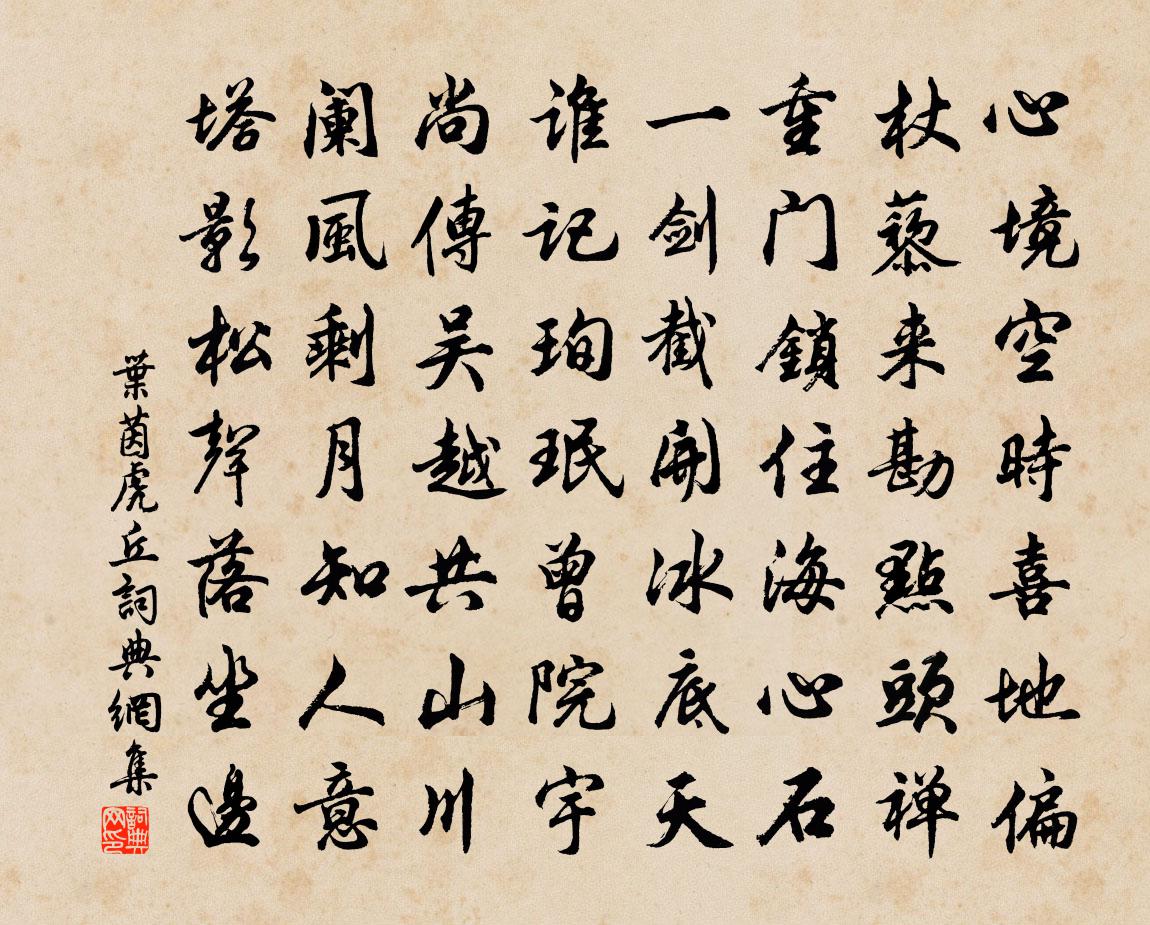 心境空時喜地偏
杖藜来勘點頭禅
重门鎖住海心石
一剑截開冰底天
谁记珣珉曾院宇
尚傳吴越共山川
阑風剩月知人意
塔影松聲落坐邊
葉茵虎丘詞典網集
詞典网印